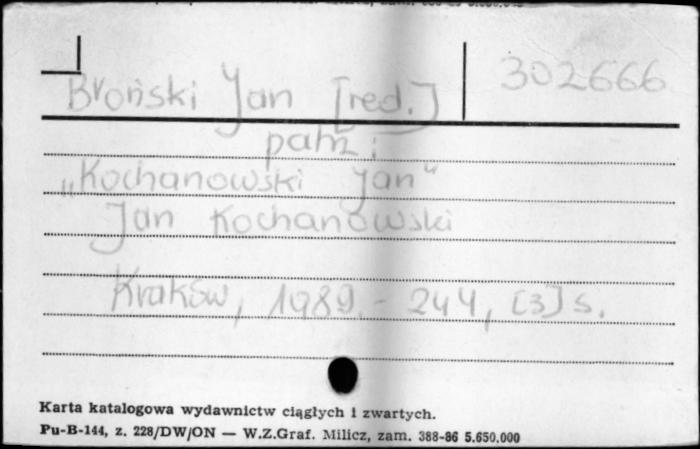 302666
Broński Jan [red.]
patrz:
„Kochanowski Jan"
Jan Kochanowski
Kraków, 1989. - 244, [3] s.
Karta katalogowa wydawnictw ciągłych i zwartych.
Pu-B-144, z. 228/DW/ON — W.Z.Graf. Milicz, zam. 388-86 5.650.000